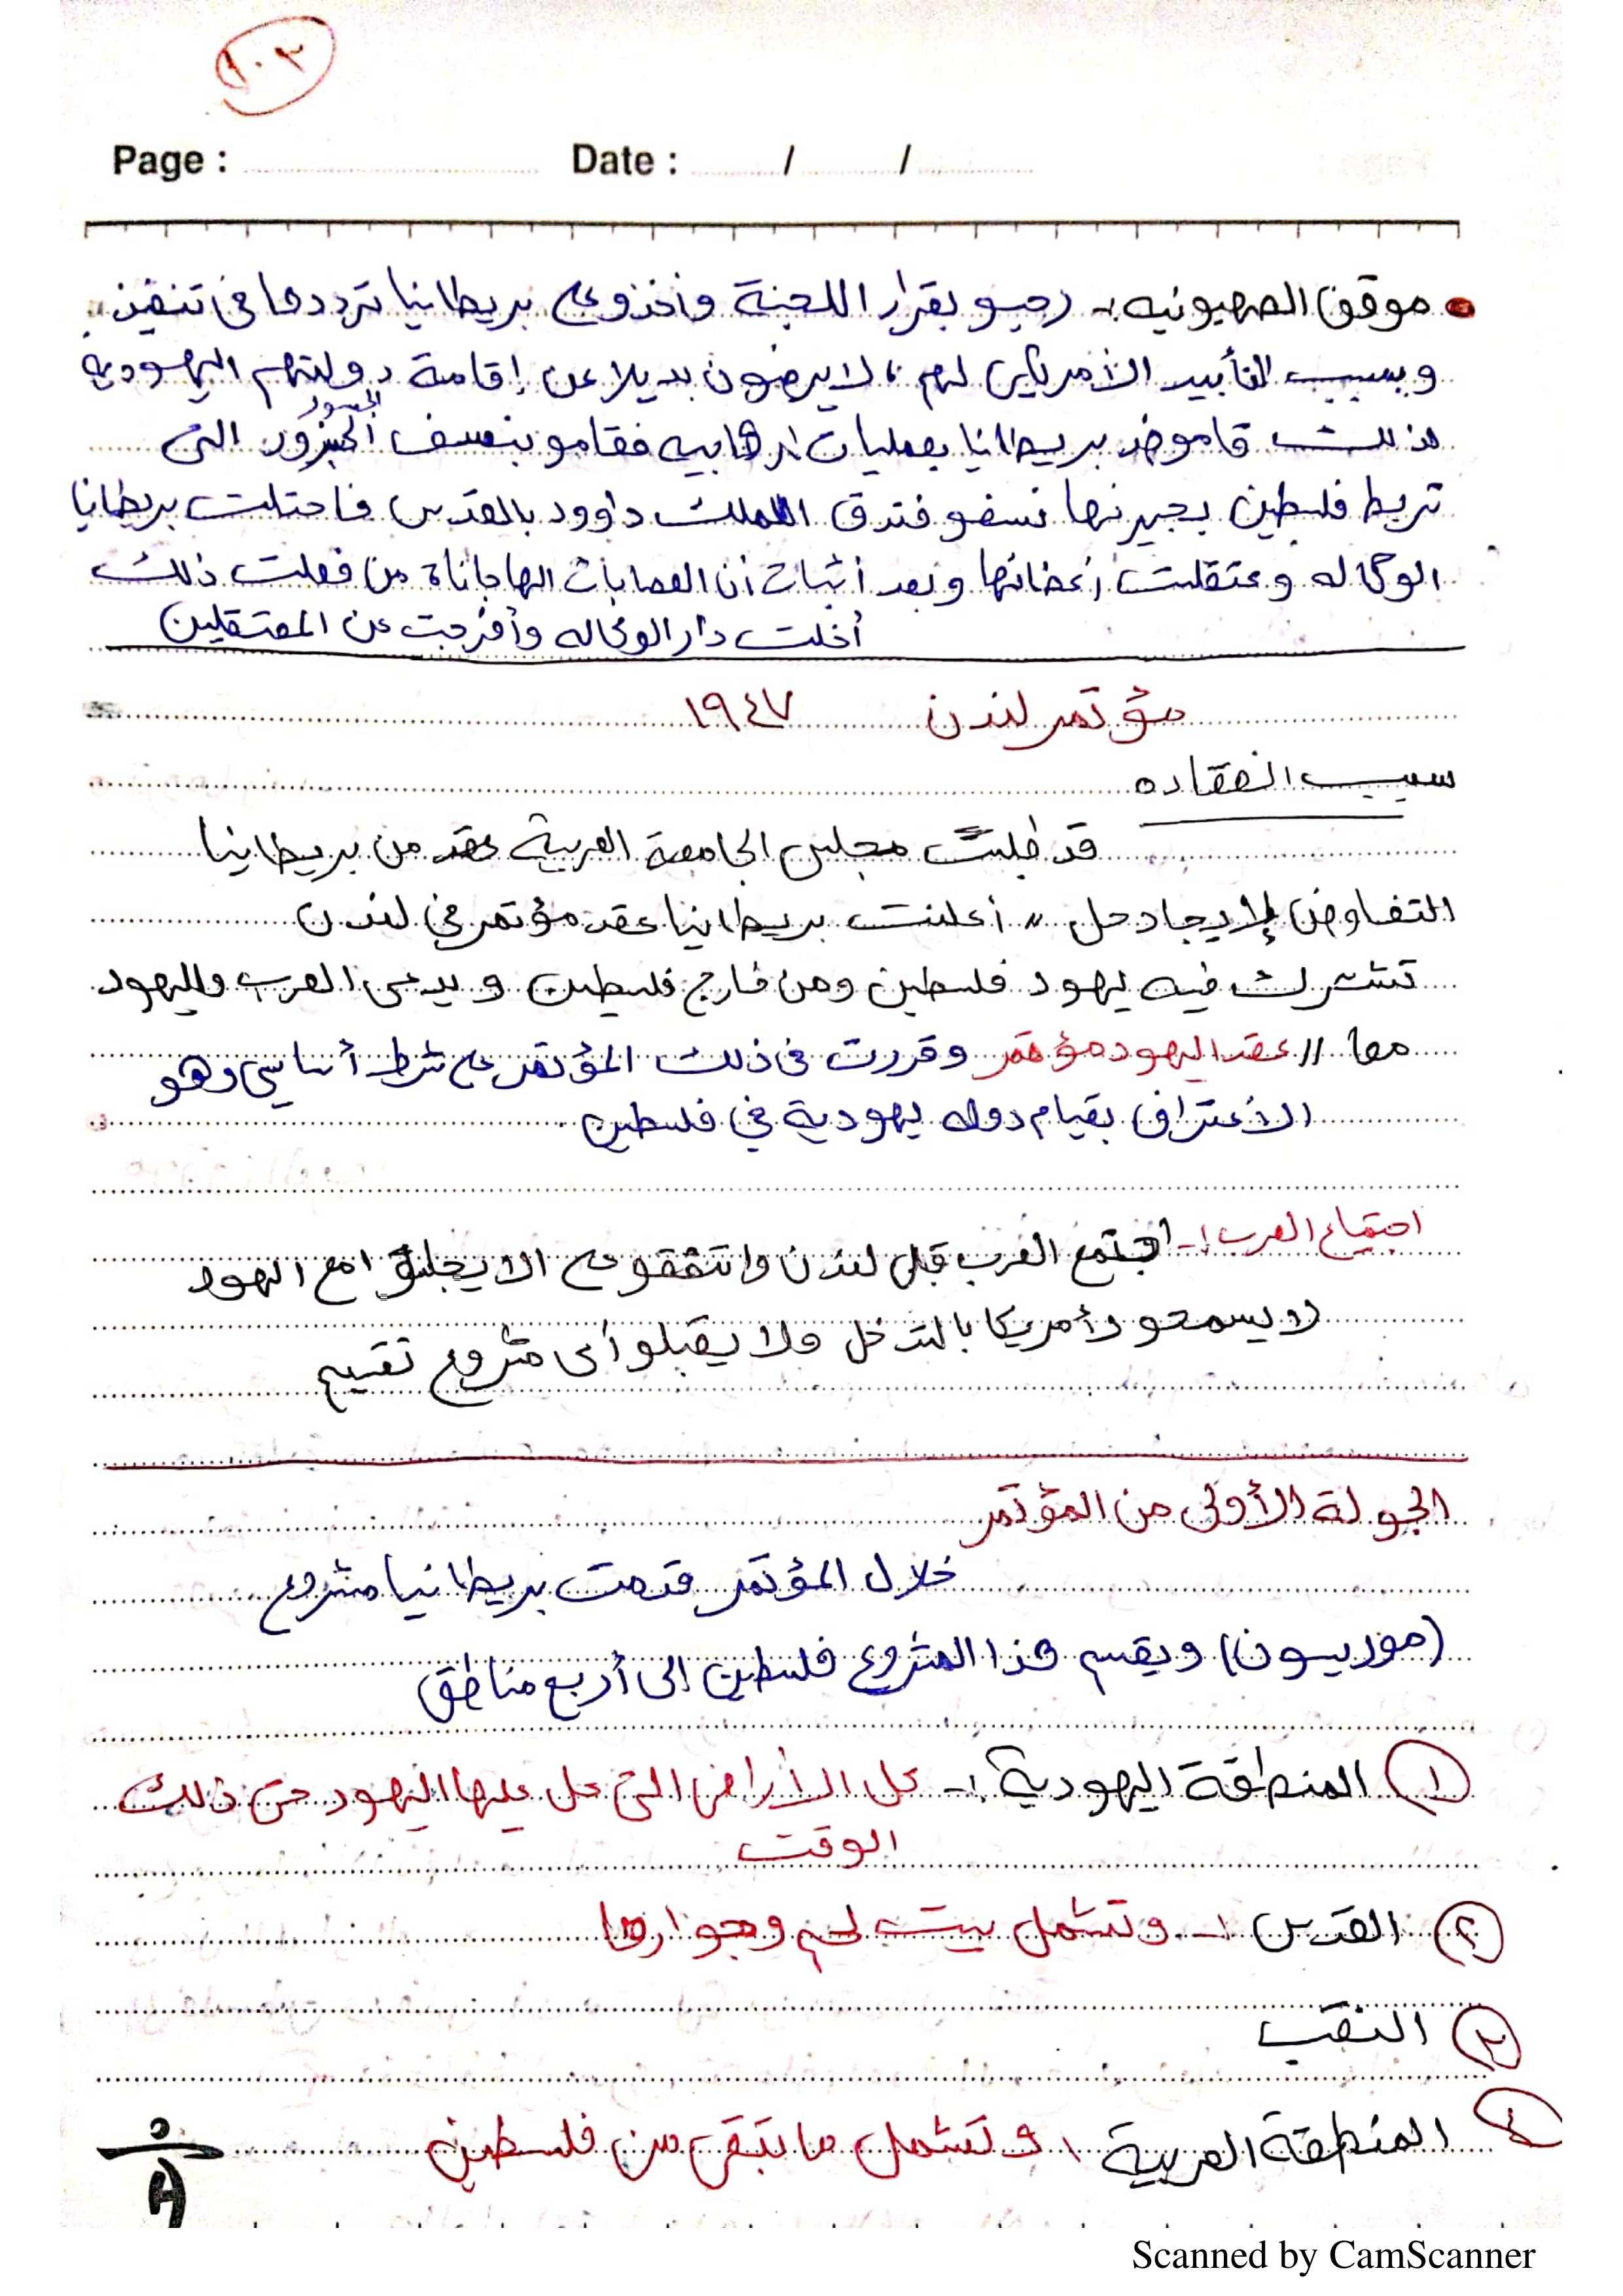 ١٠٣
Page : Date : / /
موقف الصهيونيه :- رحبو بقرار اللجنة واخذو على بريطانيا ترددها في تنفيذ
وبسبب التأييد الأمريكي لهم ، لا يرضون بديلا عن إقامة دولتهم اليهوديه
الجسور
لذلك قامو ضد بريطانيا بعمليات ارهابيه فقامو بنسف التى
تربط فلسطين بجيرنها نسفو فندق الملك داوود بالقدس فاحتلت بريطانيا
الوكاله وعتقلت أعضائها وبعد أثبات أن العصابات الهاجاناة من فعلت ذلك
أخلت دار الوكاله وأفرجت عن المعتقلين
مؤتمر لندن ١٩٤٧
سبب انعقاده
قد طلبت مجلس الجامعة العربية عقد من بريطانيا
التفاوض لإيجاد حل // أعلنت بريطانيا عقد مؤتمر في لندن
تشترك فيه يهود فلسطين ومن خارج فلسطين ويدعى العرب واليهود
معا // عقد اليهود مؤتمر وقررت فى ذلك المؤتمر على شرط أساسي وهو
الاعتراف بقيام دوله يهودية في فلسطين .
اجتماع العرب :- اجتمع العرب قبل لندن واتفقو على الا يجلسو امع اليهود
لا يسمحو لأمريكا بالتدخل ولا يقبلو أى مشروع تقسيم
الجولة الأولى من المؤتمر
خلال المؤتمر قدمت بريطانيا مشروع
(موريسون) ويقسم هذا المشروع فلسطين الى أربع مناطق
١ المنطقة اليهودية :- كل الأراضى التى حل عليها اليهود حتى ذلك
الوقت
٢ القدس :- وتشمل بيت لحم وجوارها
٣ النقب
٤ المنطقة العربية : وتشمل ما تبقى من فلسطين
Scanned by CamScanner